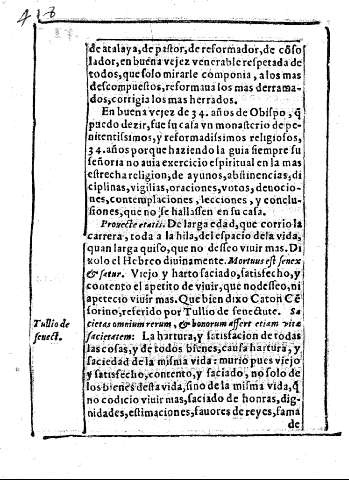 de atalaya, de pastor, de reformador, de cõso
lador, en buena vejez venerable respetada de
todos, que solo mirarle componia, a los mas
descompuestos, reformaua los mas derrama-
dos, corrigia los mas herrados.
En buena vejez de 34. años de Obispo, q̃
puedo dezir, fue su casa vn monasterio de pe-
nitentissimos, y reformadissimos religiosos,
34. años porque haziendo la guia siempre su
señoria no auia exercicio espiritual en la mas
estrecha religion, de ayunos, abstinencias, di
ciplinas, vigilias, oraciones, votos, deuocio-
nes, contemplaciones, lecciones, y conclu-
siones, que no se hallassen en su casa.
Prouecte etatis. De larga edad, que corrio la
carrera, toda a la hila, del espacio de la vida,
quan larga quiso, que no desseo viuir mas. Di
xolo el Hebreo diuinamente. Mortuus est senex
& satur. Viejo y harto saciado, satisfecho, y
contento el apetito de viuir, que no desseo, ni
apetecio viuir mas. Que bien dixo Caton Cẽ
sorino, referido por Tullio de senectute. Sa
Tullio de
senect.
cietas omnium rerum, & bonorum affert etiam vitæ
sacietatem: La hartura, y satisfacion de todas
las cosas, y de todos bienes, causa hartura, y
saciedad de la misma vida: murio pues viejo
y satisfecho, contento, y saciado, no solo de
los bienes desta vida, sino de la misma vida, q̃
no codicio viuir mas, saciado de honras, dig-
nidades, estimaciones, fauores de reyes, fama
de